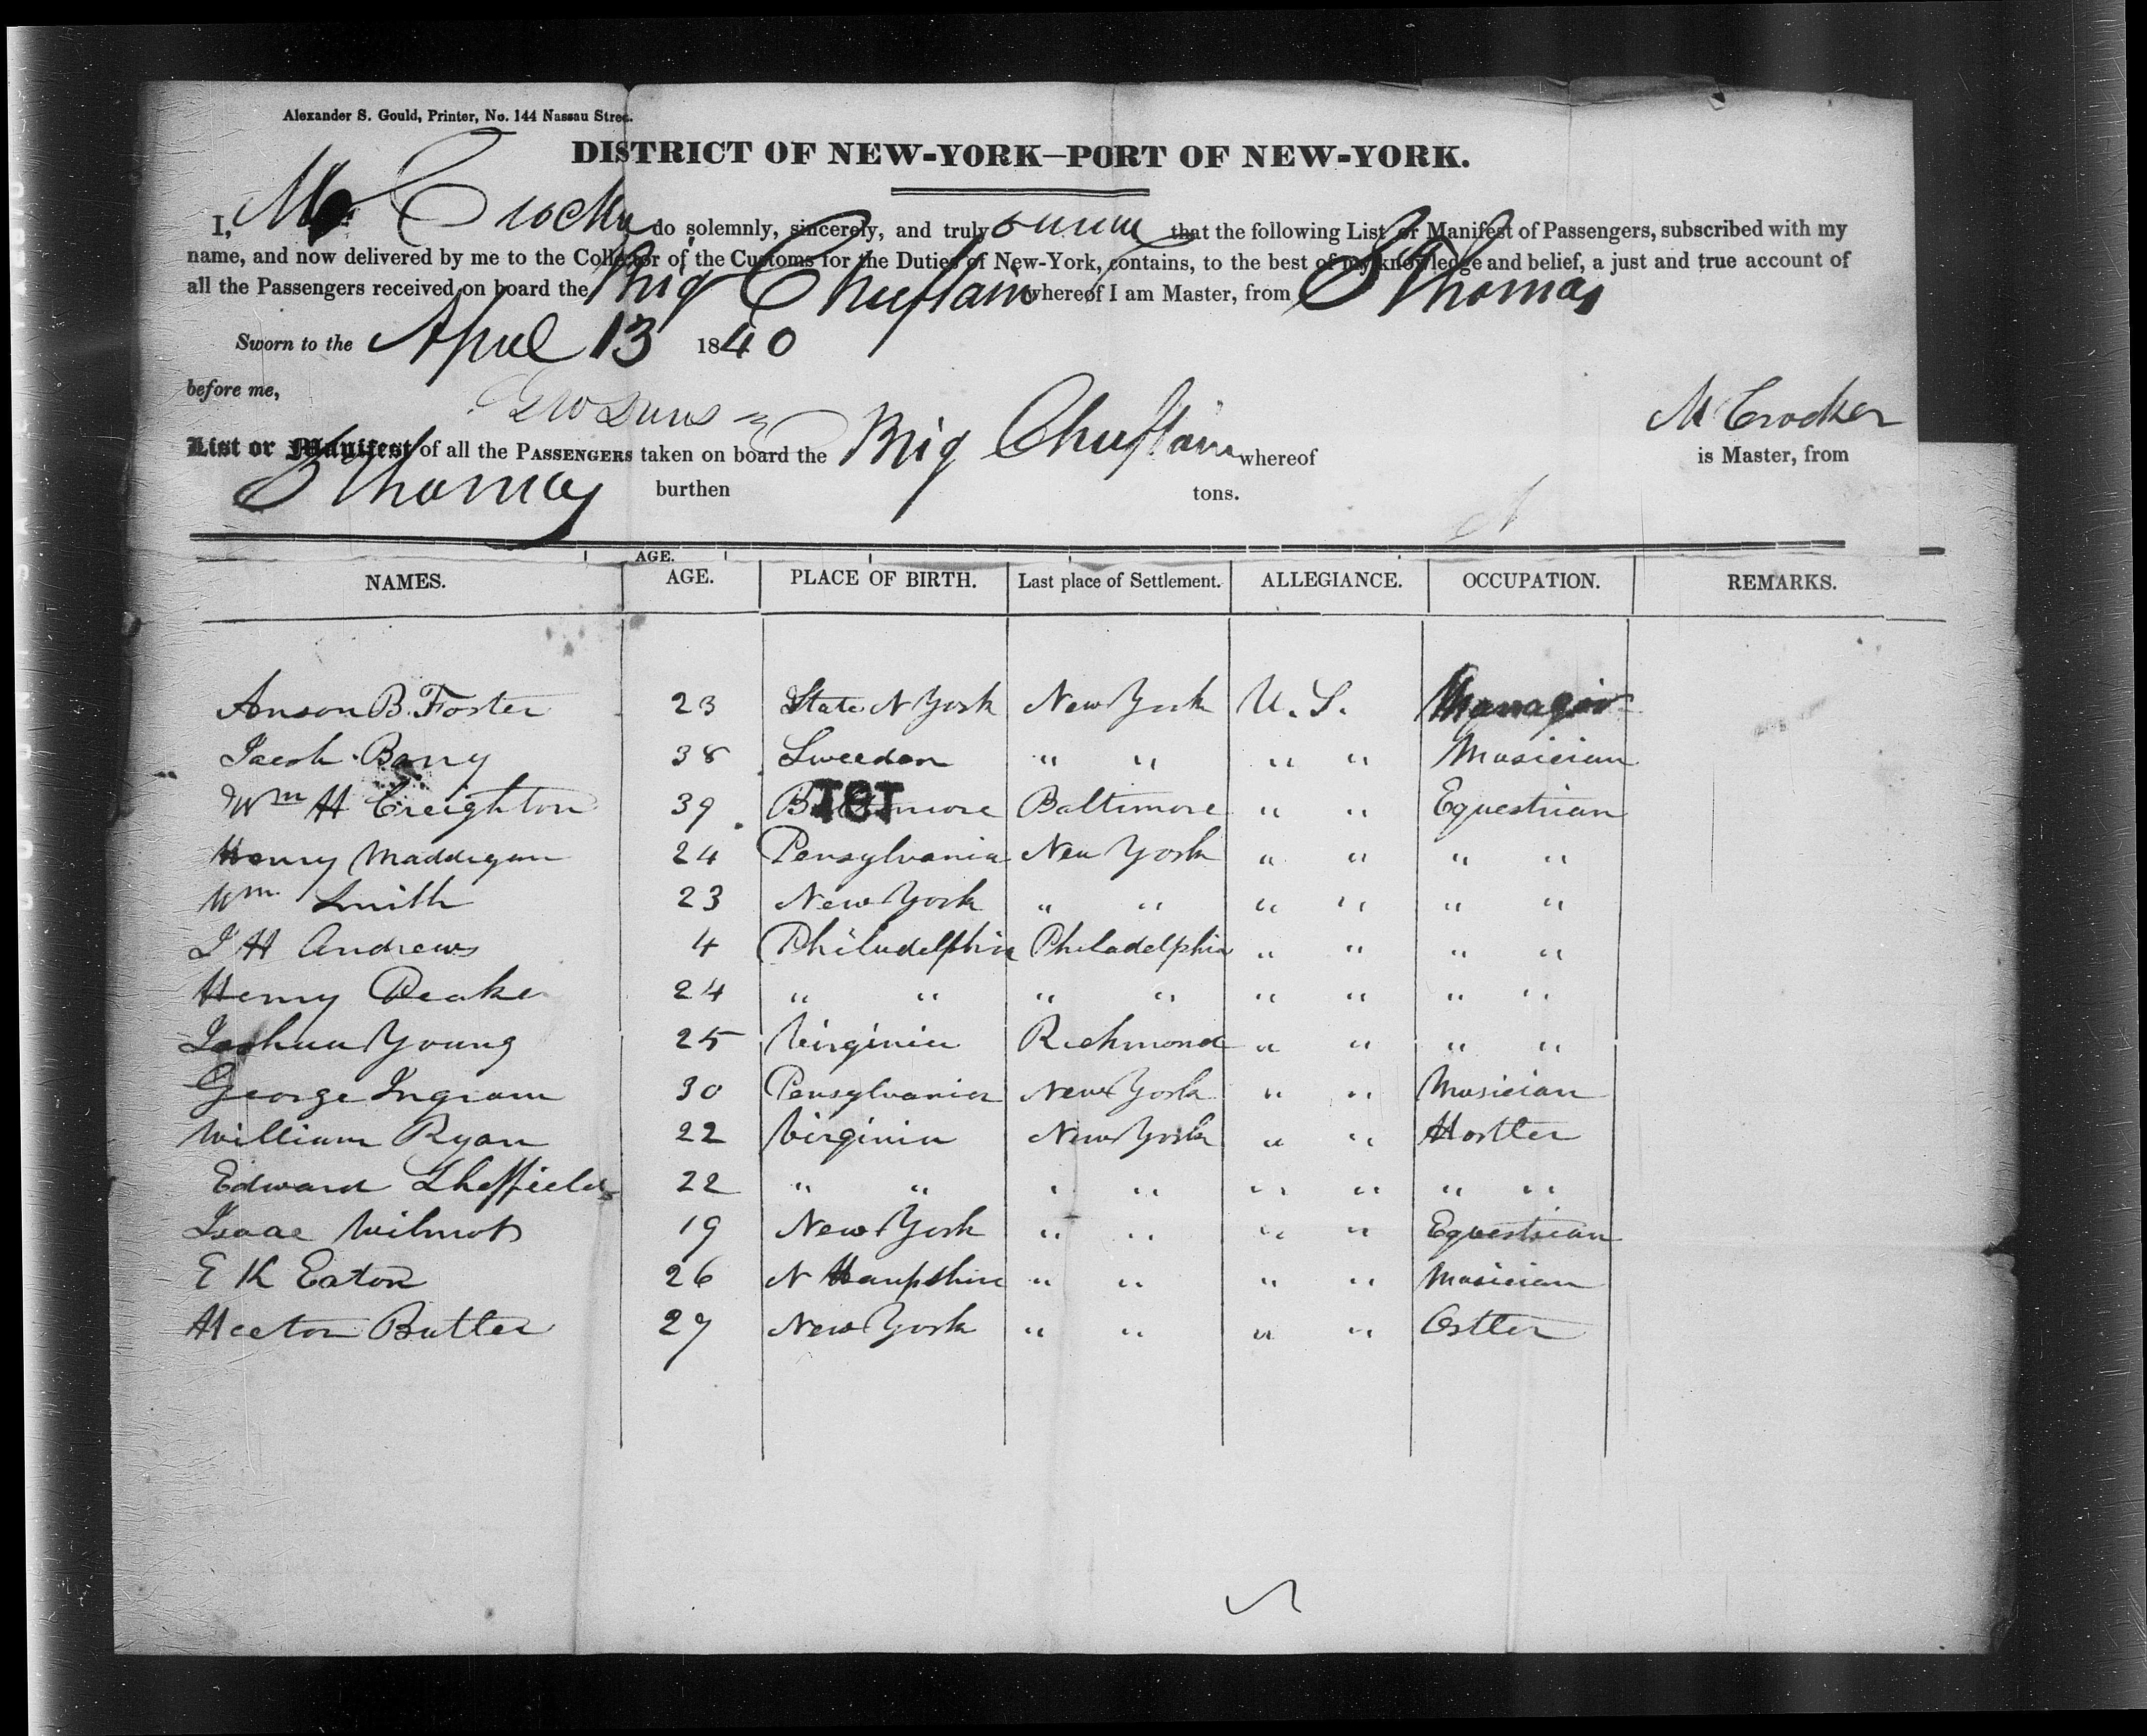 Alexander S. Gould, Printer, No. 144 Nassau Stree.
DISTRICT OF NEW-YORK—PORT OF NEW-YORK.
I, M Crocker do solemnly, sincerely, and truly swear that the following List or Manifest of Passengers, subscribed with my
name, and now delivered by me to the Collector of the Customs for the Duties of New-York, contains, to the best of my knowledge and belief, a just and true account of
all the Passengers received on board the Brig Chieftain whereof I am Master, from St Thomas
Sworn to the April 13 1840
before me,
M Crocker
List or Manifest of all the PASSENGERS taken on board the Brig Chieftain whereof is Master, from
St Thomas burthen tons.
AGE.
NAMES. AGE. PLACE OF BIRTH. Last place of Settlement. ALLEGIANCE. OCCUPATION. REMARKS.
Anson B. Foster 23 State N York New York U. S. Manager
Jacob Barry 38 Sweeden " " " " Musician
181
Wm H Creighton 39 Baltimore Baltimore " " Equestrian
Henry Maddigan 24 Pensylvania New York " " " "
Wm Smith 23 New York " " " " " "
J H Andrews 4 Philadelphia Philadelphia " " " "
Henry Deake 24 " " " " " " " "
Joshua Young 25 Virginia Richmond " " " "
George Ingram 30 Pensylvania New York " " Musician
William Ryan 22 Virginia New York " " Hostler
Edward Sheffield 22 " " " " " " " "
Isaac Wilmot 19 New York " " " " Equestrian
E K Eaton 26 N Hampshire " " " " Musician
Hector Butler 27 New York " " " " Ostler